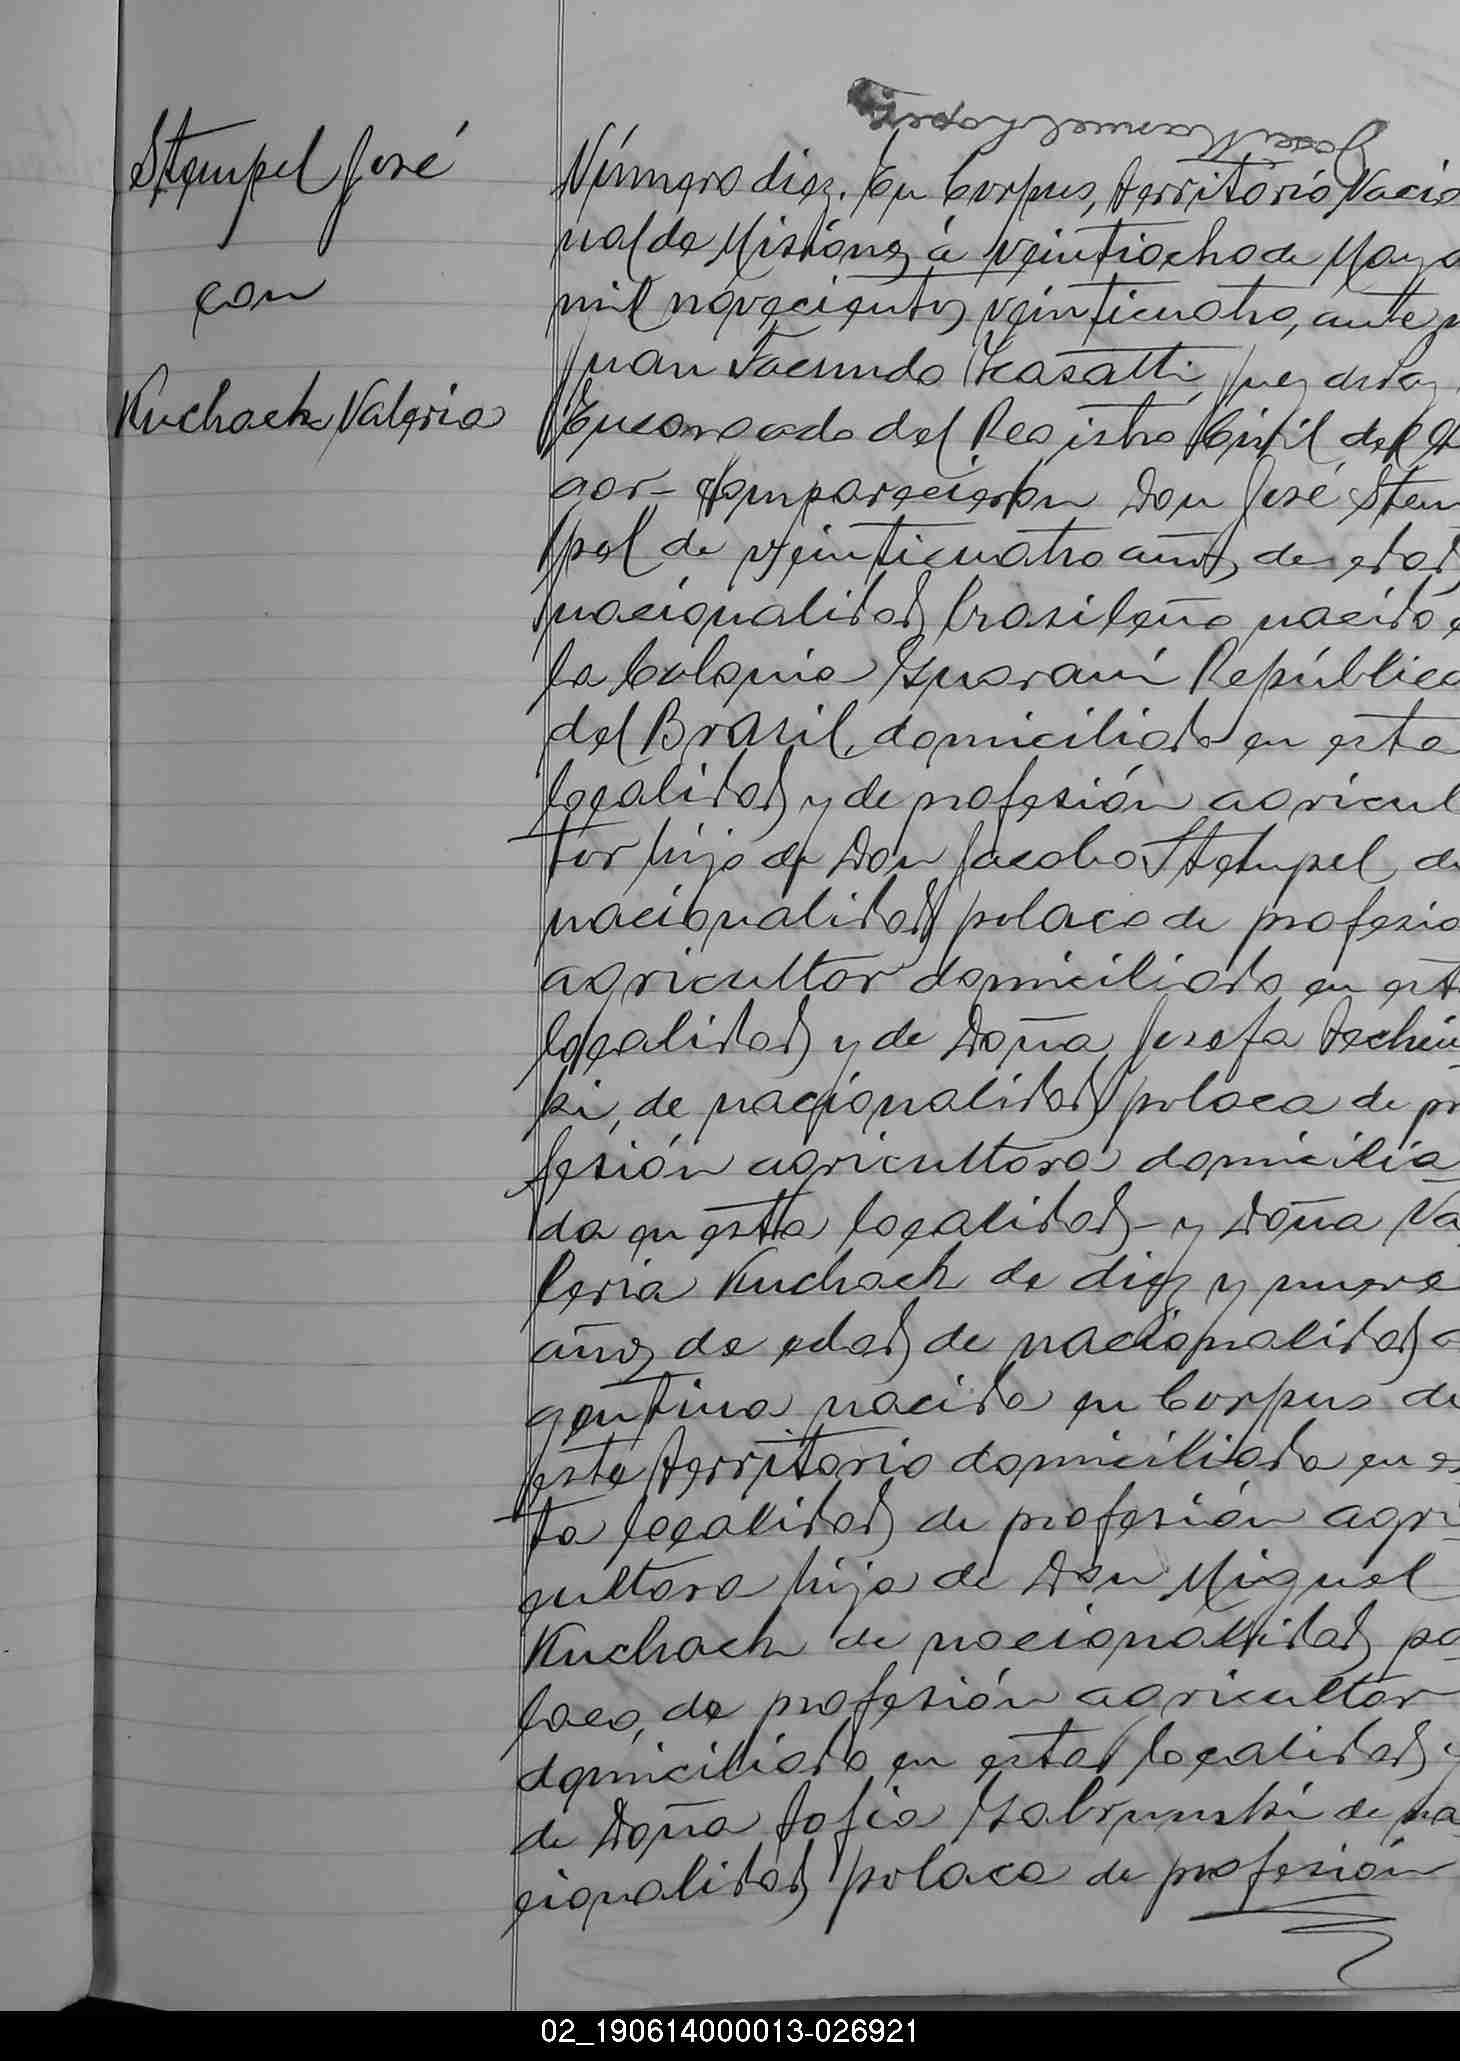 Stempel José
con
Kuchach Valeria
Número diez. En Corpus, territorio Nacio
nal de Misiones, á veintiocho de Mayo
mil novecientos veinticuatro, ante m
Juan Facundo Juez de Paz
Encargado del Registro Civil del
gar- Comparecieron Don José Stem
pel de veinticuatro años de edad,
nacionalidad brasileña nacido e
la Colonia Guaraní República
del Brasil, domiciliado en esta
localidad y de profesión agricul
tor hijo de Don Jacobo Stempel de
nacionalidad polaco de profesio
agricultor domiciliado en est
localidad y de Doña Josefa
ki, de nacionalidad polaca de pr
fesión agricultora domicilia
da en ésta localidad - y Doña Va
leria Kuchach de diez y nueve
años de edad de nacionalidad a
gentina nacida en Corpus de
este territorio domiciliada en es
ta localidad de profesión agri
cultora hija de Don Miguel
Kuchach de nacionalidad po
laco, de profesión agricultor
domiciliado en esta localidad y
de Doña Sofia de na
cionalidad polaca de profesión
02_190614000013-026921